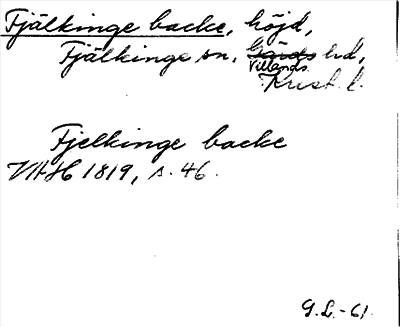 Fjälkinge backe, höjd,
Fjälkinge sn, Gärds hd,
Villands
Krist. l.
Fjelkinge backe
VHH 1819, s. 46.
G.L.-61.